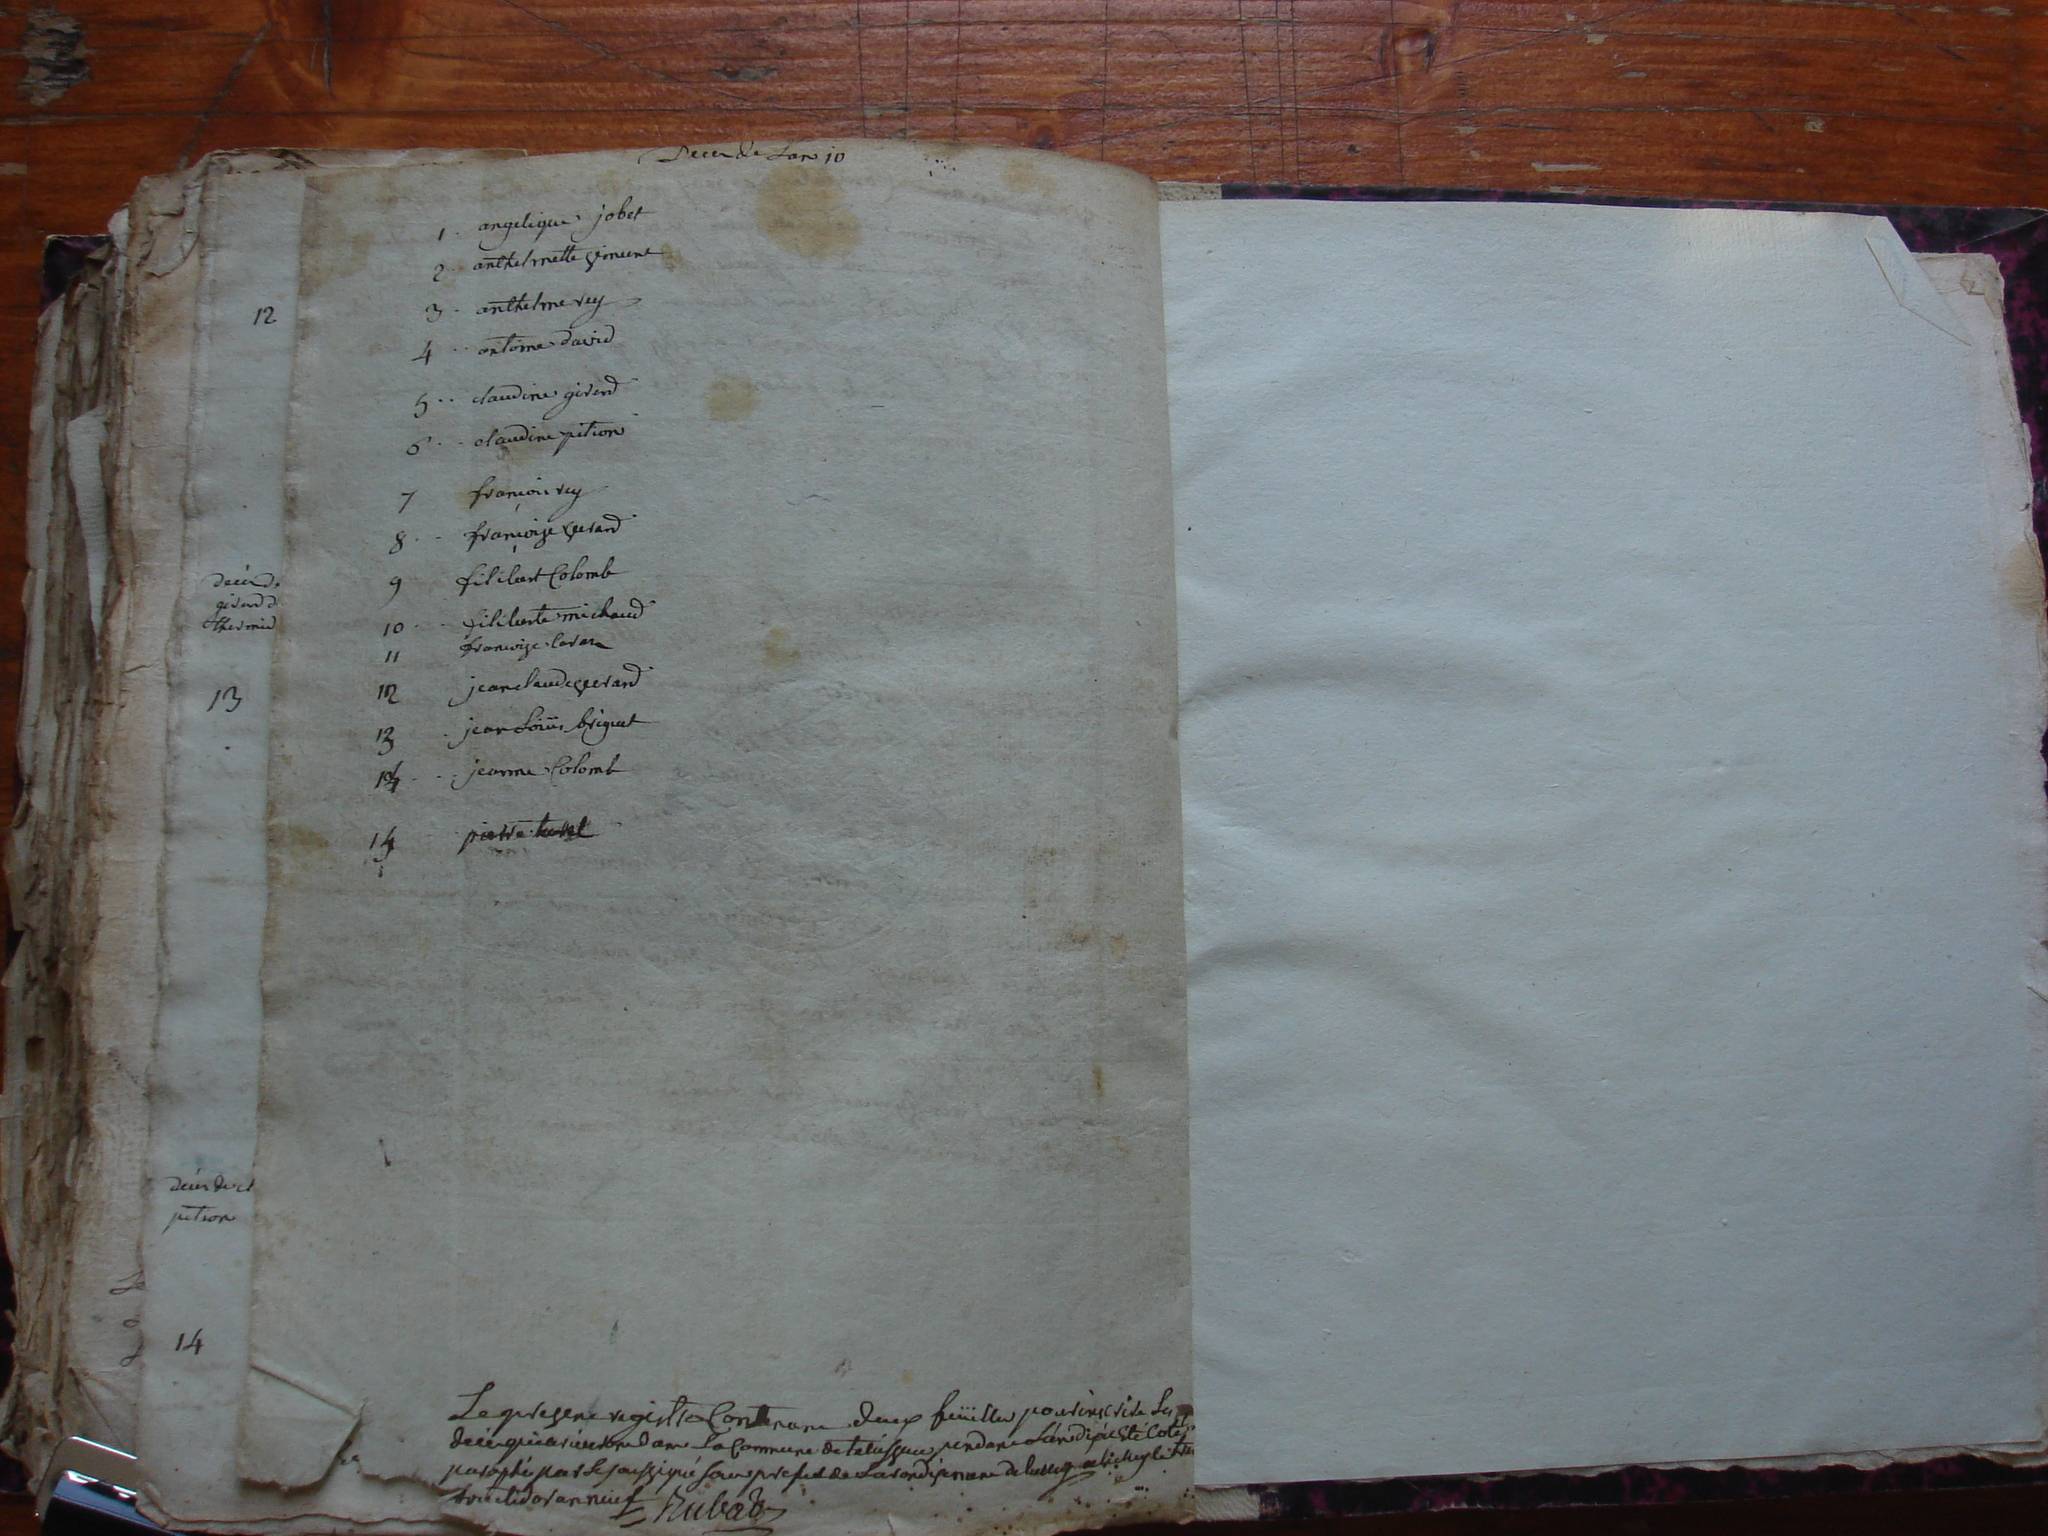 Deces de Lan 10
1 . angelique jobet
2 anthelmette
3 . anthelme rey
4 .. antoine david
5 .. claudine girerd
6 .. claudine pition
7 françois rey
8 .. françoize
9 filibert Colomb
10 .. filiberte michaud
11 françoize
12 jean claude
13 . jean Loüis briquet
14 .. jeanne Colomb
14 pierre
12
deces de
girerd
thermid
13
deces de cl
pition
14
Le present registre Contenant deux feüilles pour inscrire Les
deces qui arriveront dans La Commune de pendant L'an dix a eté Coté
paraphé par Le soussigné sous prefet de L'arrondissement de
fructidor an neuf